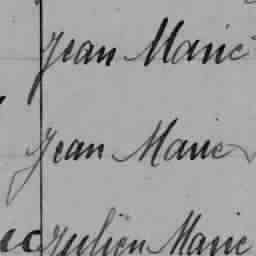 Jean Marie
Jean Marie
Julien Marie